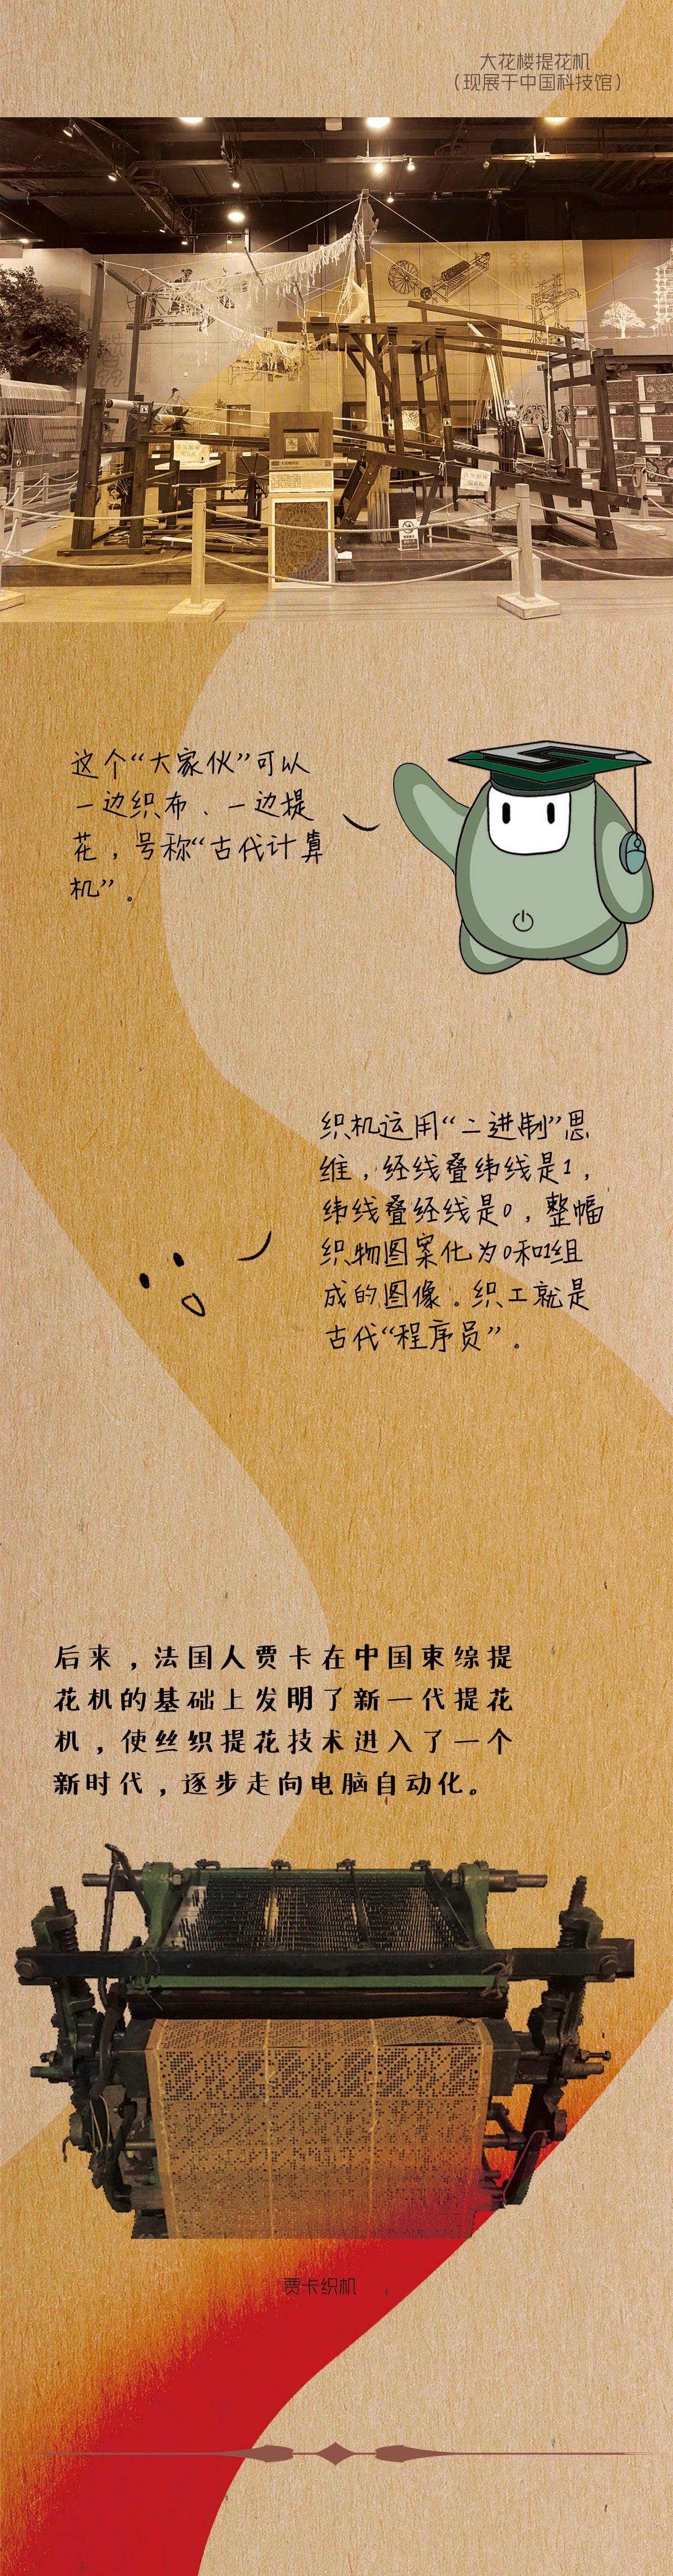 大花楼提花机
（现展于中国科技馆）
这个“大家伙”可以
一边织布、一边提
花，号称“古代计算
机”。
织机运用“二进制”思
维，经线叠纬线是1，
纬线叠经线是0，整幅
织物图案化为0和1组
成的图像。织工就是
古代“程序员”。
后来，法国人贾卡在中国束综提
花机的基础上发明了新一代提花
机，使丝织提花技术进入了一个
新时代，逐步走向电脑自动化。
贾卡织机